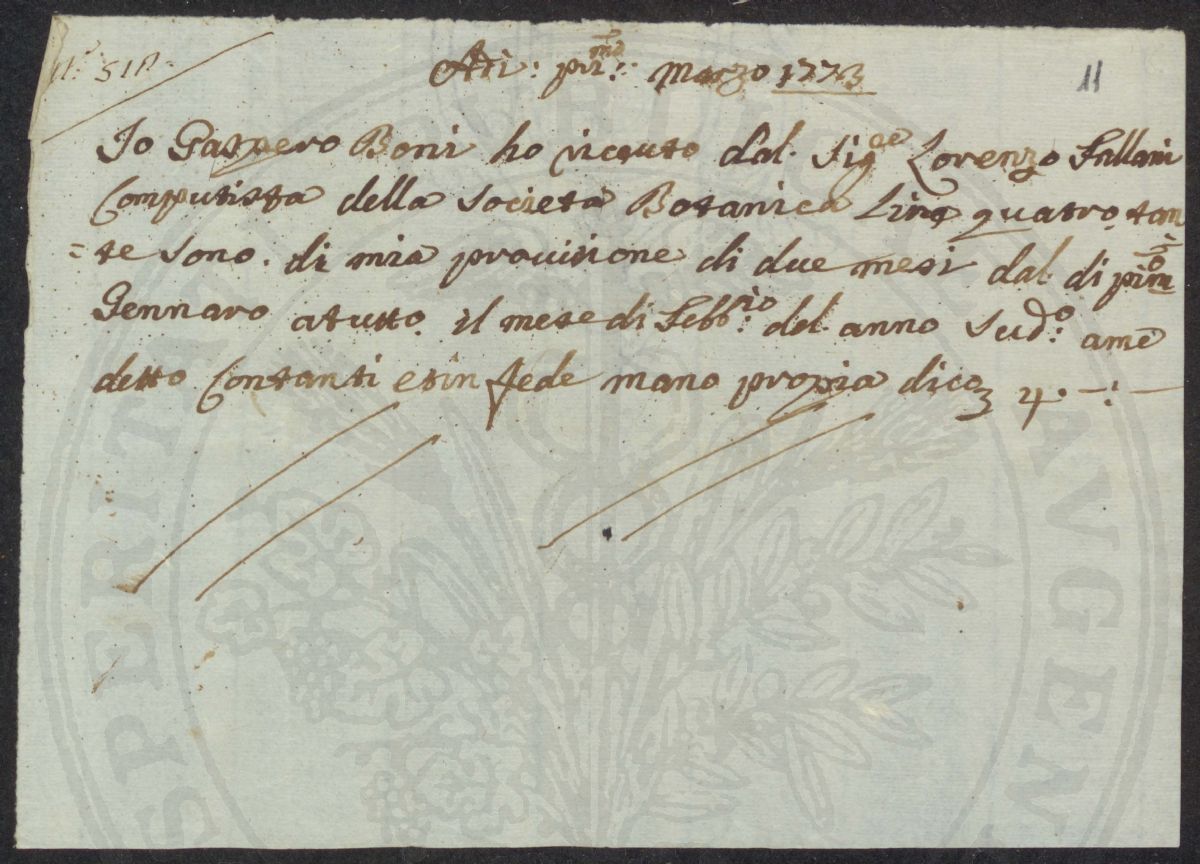 N.° 511.
Adì: pri:mo Marzo 1773
11
Io Gaspero Boni ho riceuto dal. Sig.re Lorenzo Fallani
Computista della Società Botanica Lire quatro. tan
=te sono. di mia prouisione di due mesi dal. di primo
Gennaro atutto. il mese di Febb:rio del. anno Sud:o ame
detto Contanti et in fede mano propia dico 4. —:—
SPERITAS
AVGEN